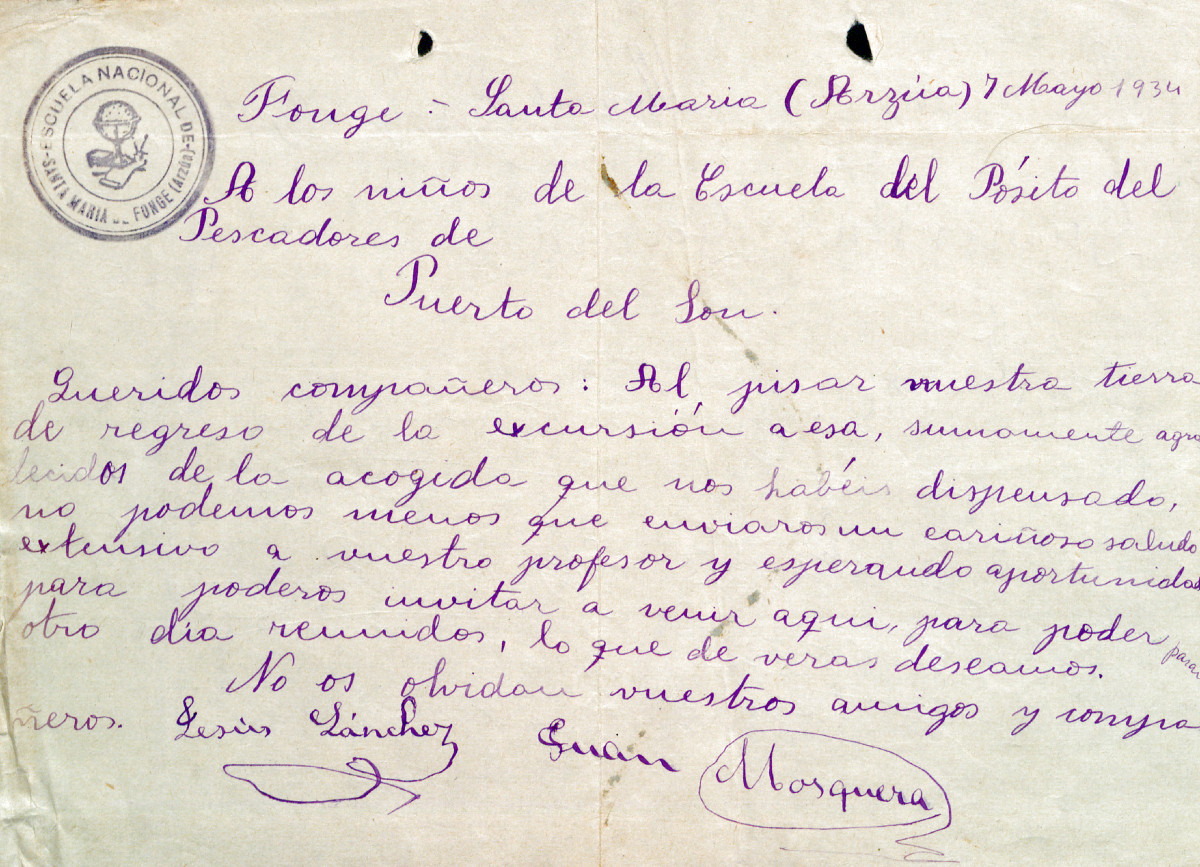 ESCUELA NACIONAL DE
SANTA MARIA DE FONGE (Arzúa)
Fonge - Santa Maria (Arzúa) 7 Mayo 1934
A los niños de la Escuela del Pósito del
Pescadores de
Puerto del Son.
Queridos compañeros: Al pisar nuestra tierra
de regreso de la excursión a esa, sumamente agra
decidos de la acogida que nos habéis dispensado,
no podemos menos que enviaros un cariñoso saludo
extensivo a vuestro profesor y esperando aportunidad
para poderos invitar a venir aqui, para poder pasar
otro día reunidos, lo que de veras deseamos.
No os olvidan vuestros amigos y compa
ñeros. Jesús Sánchez Juan Mosquera